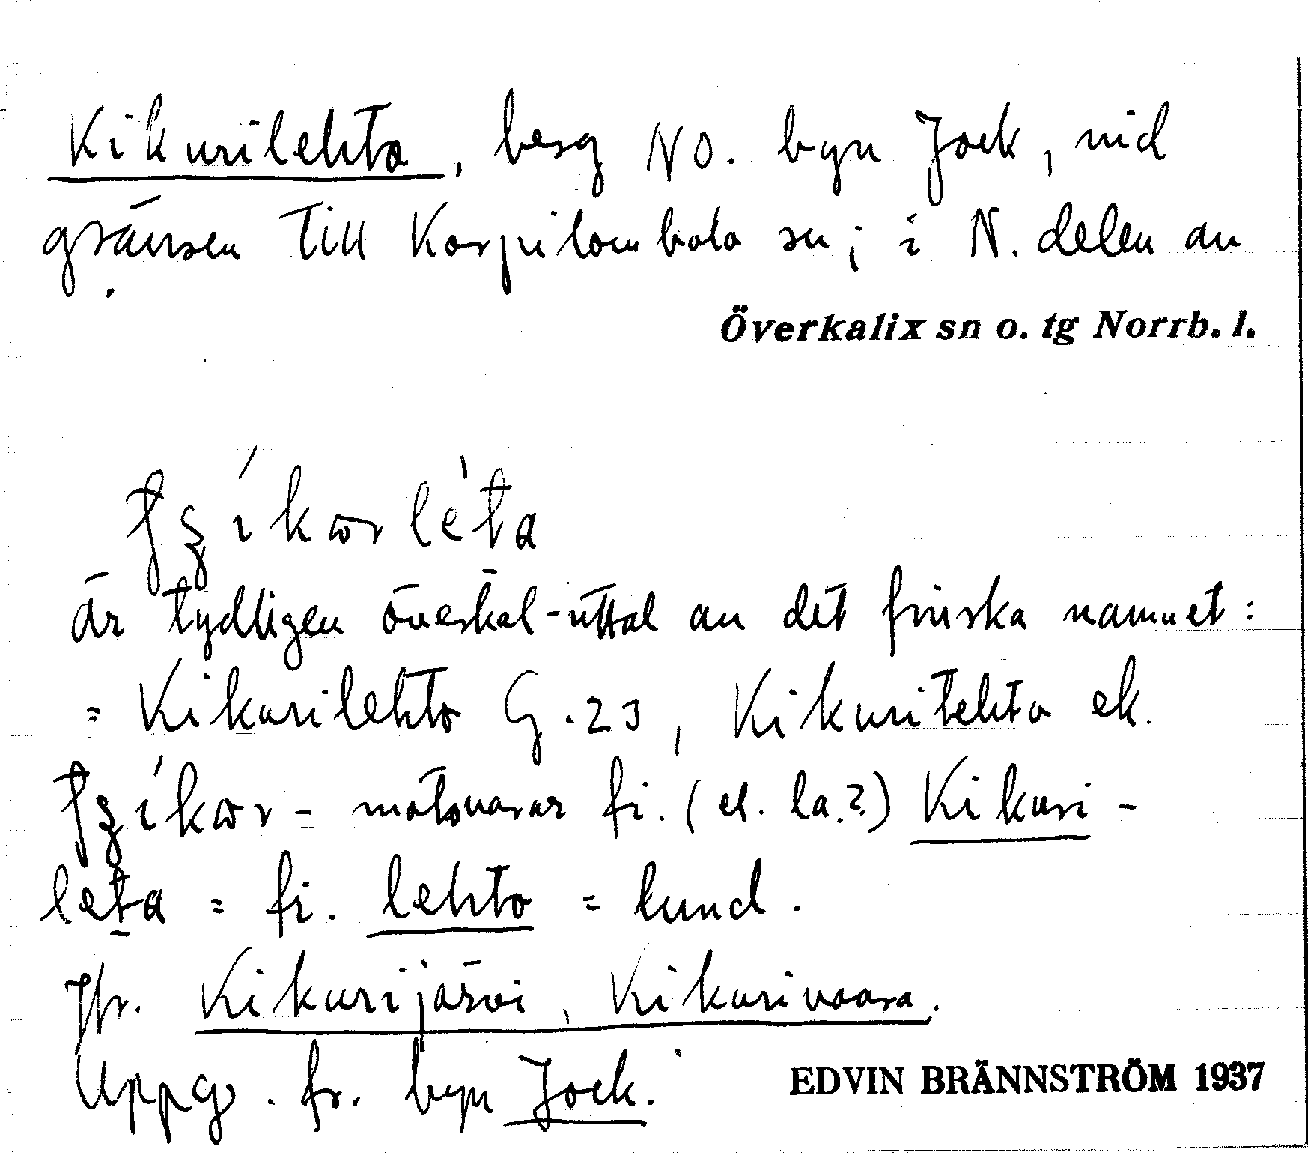 Kikurilehto, berg NO. byn Jock, vid
gränsen till Korpilombolo sn; i N. delen av
Överkalix sn o. tg Norrb. l.
är tydligen överkal-uttal av det finska namnet:
= Kikurilehto G. 23, Kikuritehto ek.
motsvarar fi. (el. la.?) Kikuri-
leta = fi. lehto = lund.
Jfr. Kikurijärvi, Kikurivaara.
Uppg. fr. byn Jock.
EDVIN BRÄNNSTRÖM 1937